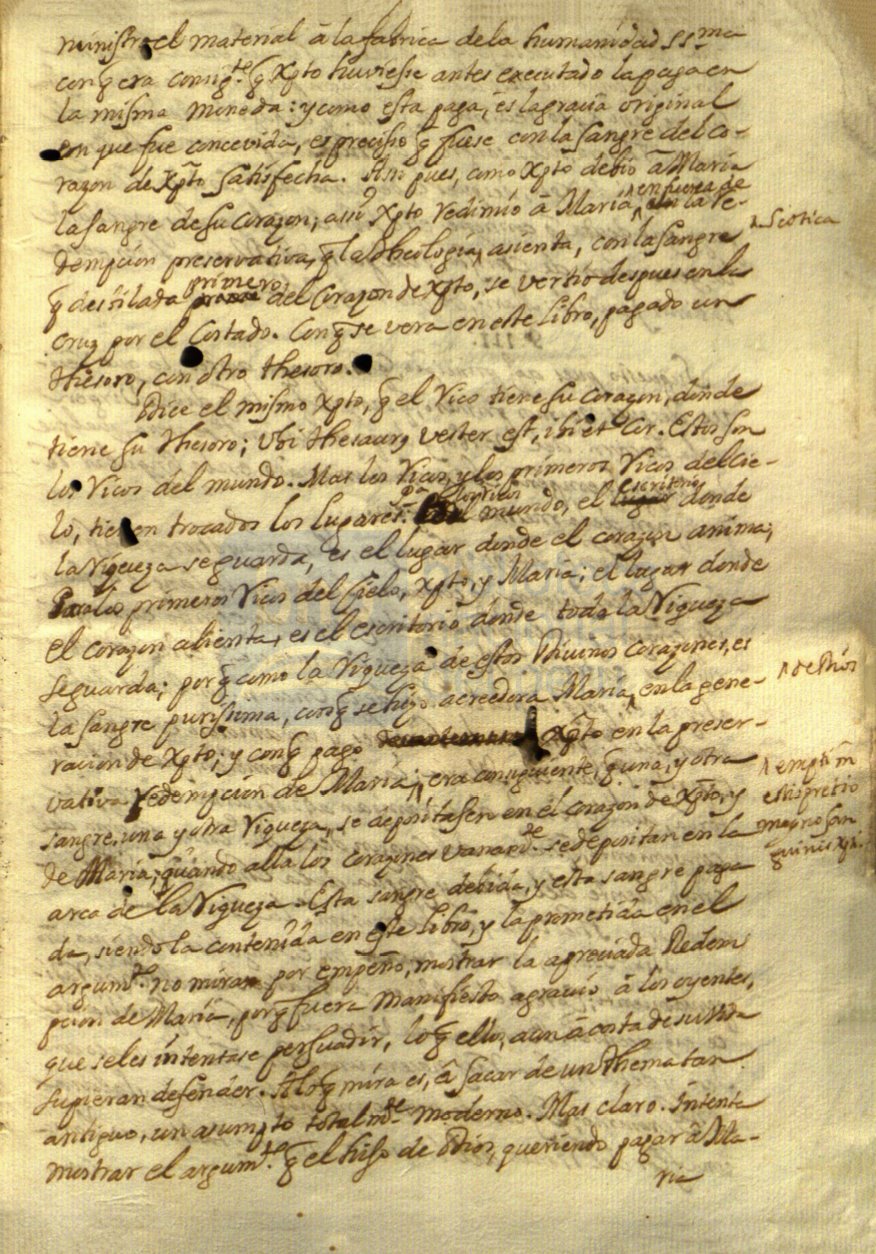 ministro el material â la fabrica dela humanidad SS.ma
con q̃ era consig.te q̃ Xpto huviesse antes executado la paga en
la misma moneda: y como esta paga, es la gracia original
en que fue concevida, es preciso q̃ fuese con la sangre del co-
razon de Xp̃to satisfecha. Asi pues, como Xpto debio â Maria
la sangre de su corazon; assi Xpto redimio â Maria, en fuerza de la re-
^ Scotica
dempcion preservativa, q̃ la Theologia, asienta, con la sangre
q̃ destilada primero, del Corazon de Xp̃to, se vertio despues en la
cruz por el Costado. Con q̃ se vera en este Libro, pagado un
thesoro, con otro thesoro.
Dice el mismo Xpto, q̃ el Rico tiene su corazon, donde
tiene su thesoro; Ubi thesaurus vester est, ibi et Cor. Estos son
los Ricos del mundo. Mas los Ricos, y los primeros Ricos del Cie-
lo, tienen trocados los lugares. p.a los ricos del mundo, el escritorio donde
la Riqueza se guarda, es el lugar donde el corazon anima;
Para los primeros Ricos del Cielo, Xpto, y Maria; el lugar donde
el corazon alienta, es el escritorio donde toda la Riqueza
se guarda; porq̃ como la Riqueza de estos Divinos corazones, es
la sangre purissima, con q̃ se hizo acreedora Maria, ^ en la gene-
^ de Dios
racion de Xpto; y con q̃ pago Xp̃to en la preser-
vativa Redempcion de Maria; ^ era consiguiente, q̃ una, y otra
^ empti m̃
estis pretio
magno san
guinis Xpi.
sangre, una y otra Riqueza, se depositasen en el corazon de Xp̃to, y
de Maria; quando alla los corazones vanam.te se depositan en la
arca de la Riqueza. Esta sangre debida, y esta sangre paga
da, siendo la contenida en este Libro, y la prometida en el
argum.to no miran por empeño, mostrar la apreciada Redem
pcion de Maria, porq̃ fuera manifiesto agravio â los oyentes,
que se les intentase persuadir, lo q̃ ellos, aun â costa de su vida
supieran defender. A lo q̃ mira es, â sacar de un Thema tan
antiguo, un asumpto total m.te moderno. Mas claro. Intenta
mostrar el argum.to q̃ el hijo de Dios, queriendo pagar â Ma-
ria